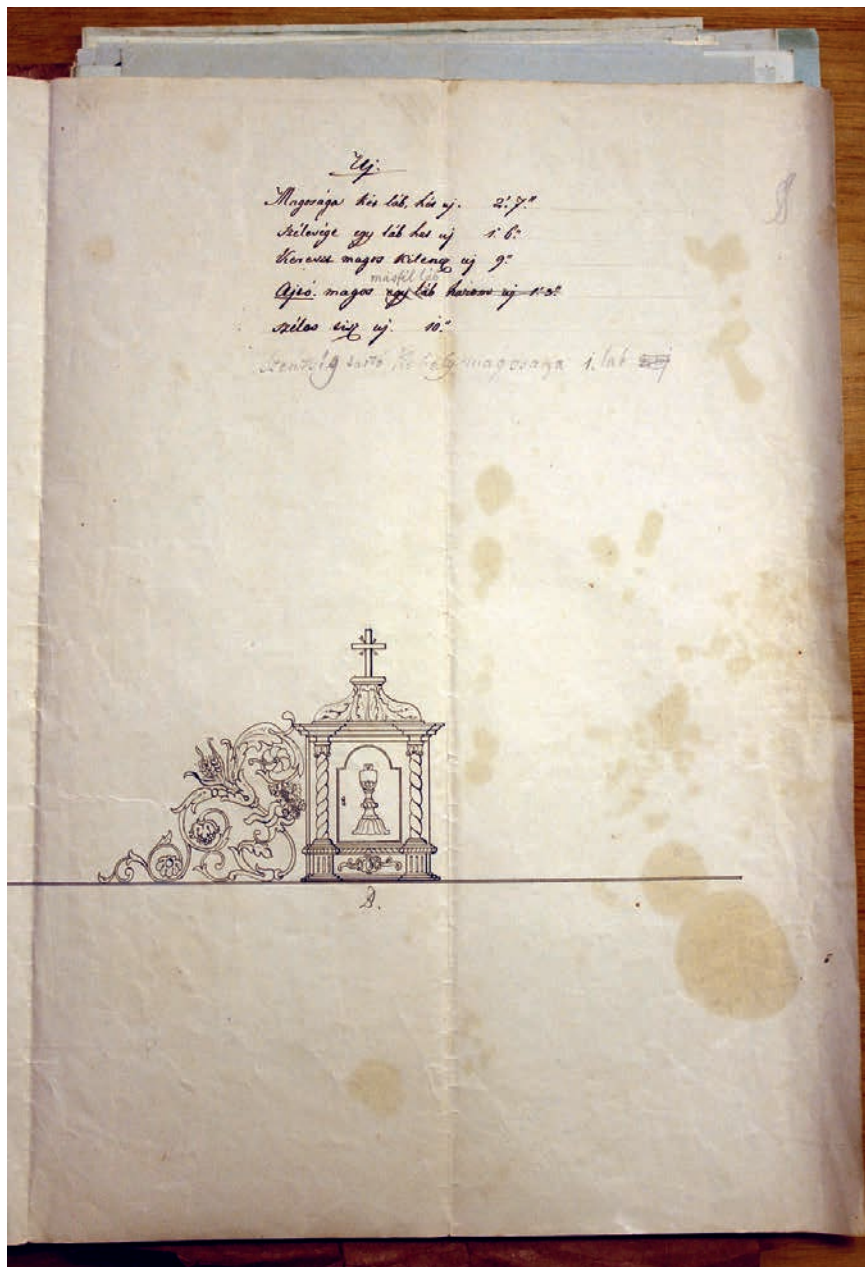 Uj.
Magosága két láb, hét uj. 2'. 7."
szélesége egy láb hat uj 1'. 6."
Kereszt magos kilencz uj 9."
másfél láb
Ajtó. magos egy láb három uj 1'. 3."
széles tisz uj. 10."
Szentség tartó Kehely magosága 1. láb